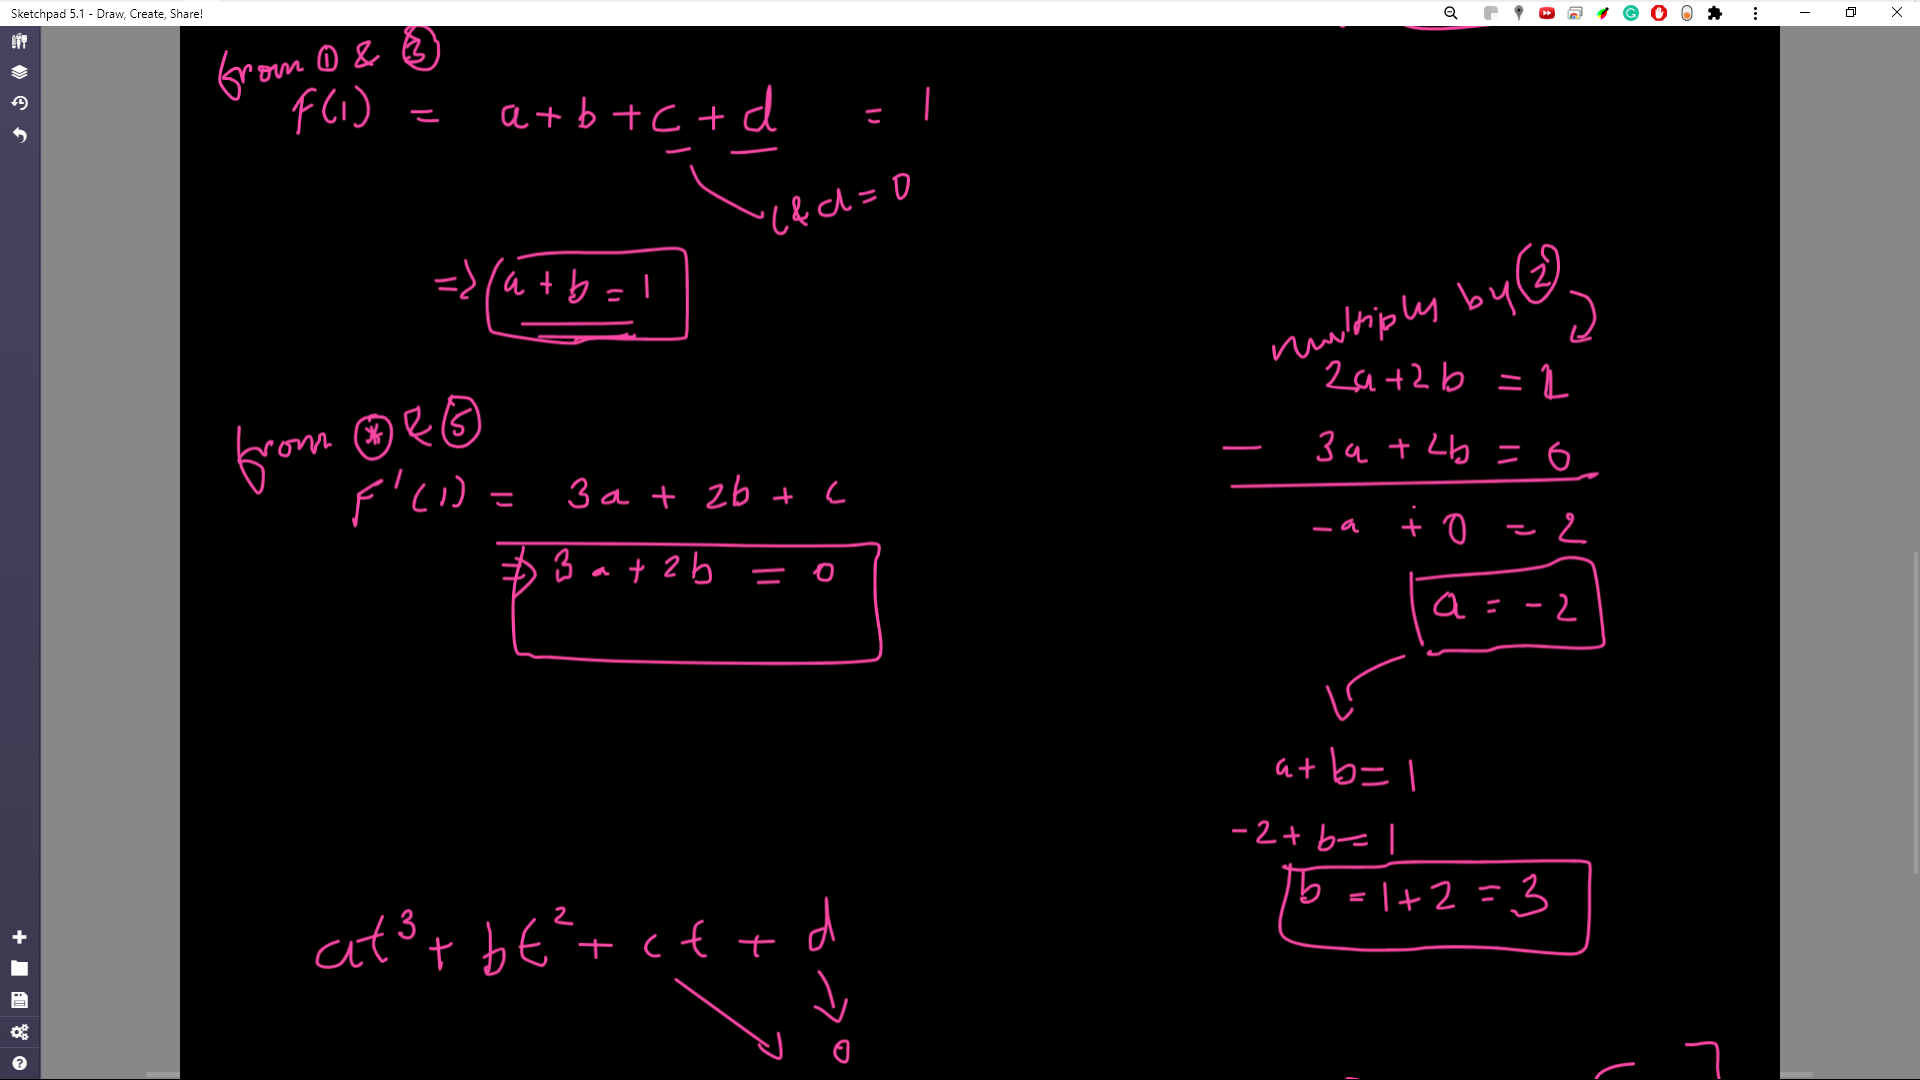 Sketchpad 5.1 - Draw, Create, Share!
from ① & ③
F(1) = a + b + c + d = 1
c & d = 0
=> a + b = 1
from ⊛ & ⑤
F'(1) = 3a + 2b + c
=> 3a + 2b = 0
at³ + bt² + ct + d
0
multiply by ②
2a + 2b = 2
— 3a + 2b = 0
-a + 0 = 2
a = -2
a + b = 1
-2 + b = 1
b = 1 + 2 = 3